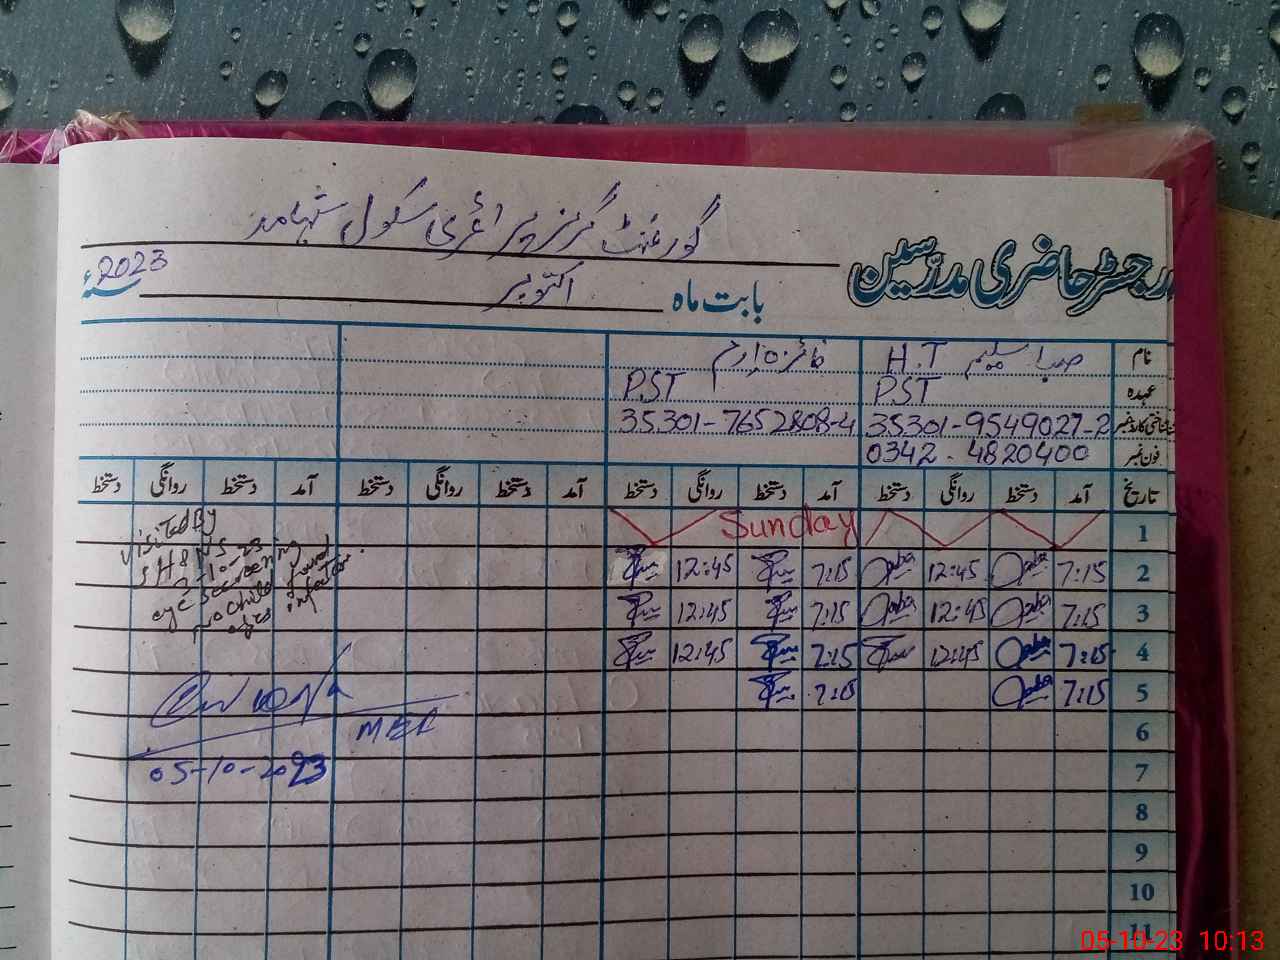 گورنمنٹ گرلز پرائمری سکول
رجسٹر حاضری مدرّسین
بابت ماہ اکتوبر 2023ء سنہ
نام صبا سلیم H.T فائزہ ارم
عہدہ PST PST
شناختی کارڈ نمبر 35301-9549027-2 35301-7652808-4
فون نمبر 0342-4820400
تاریخ آمد دستخط روانگی دستخط آمد دستخط روانگی دستخط آمد دستخط روانگی دستخط آمد دستخط روانگی دستخط
1 Sunday
2 7:15 Saba 12:45 Saba 7:15 12:45
3 7:15 Saba 12:45 Saba 7:15 12:45
4 7:15 Saba 12:45 7:15 12:45
5 7:15 Saba 7:15
6
7
8
9
10
11
Visited By
SH&NS
2-10-23
eye screening
no child found
infection
MER
05-10-2023
05-10-23 10:13